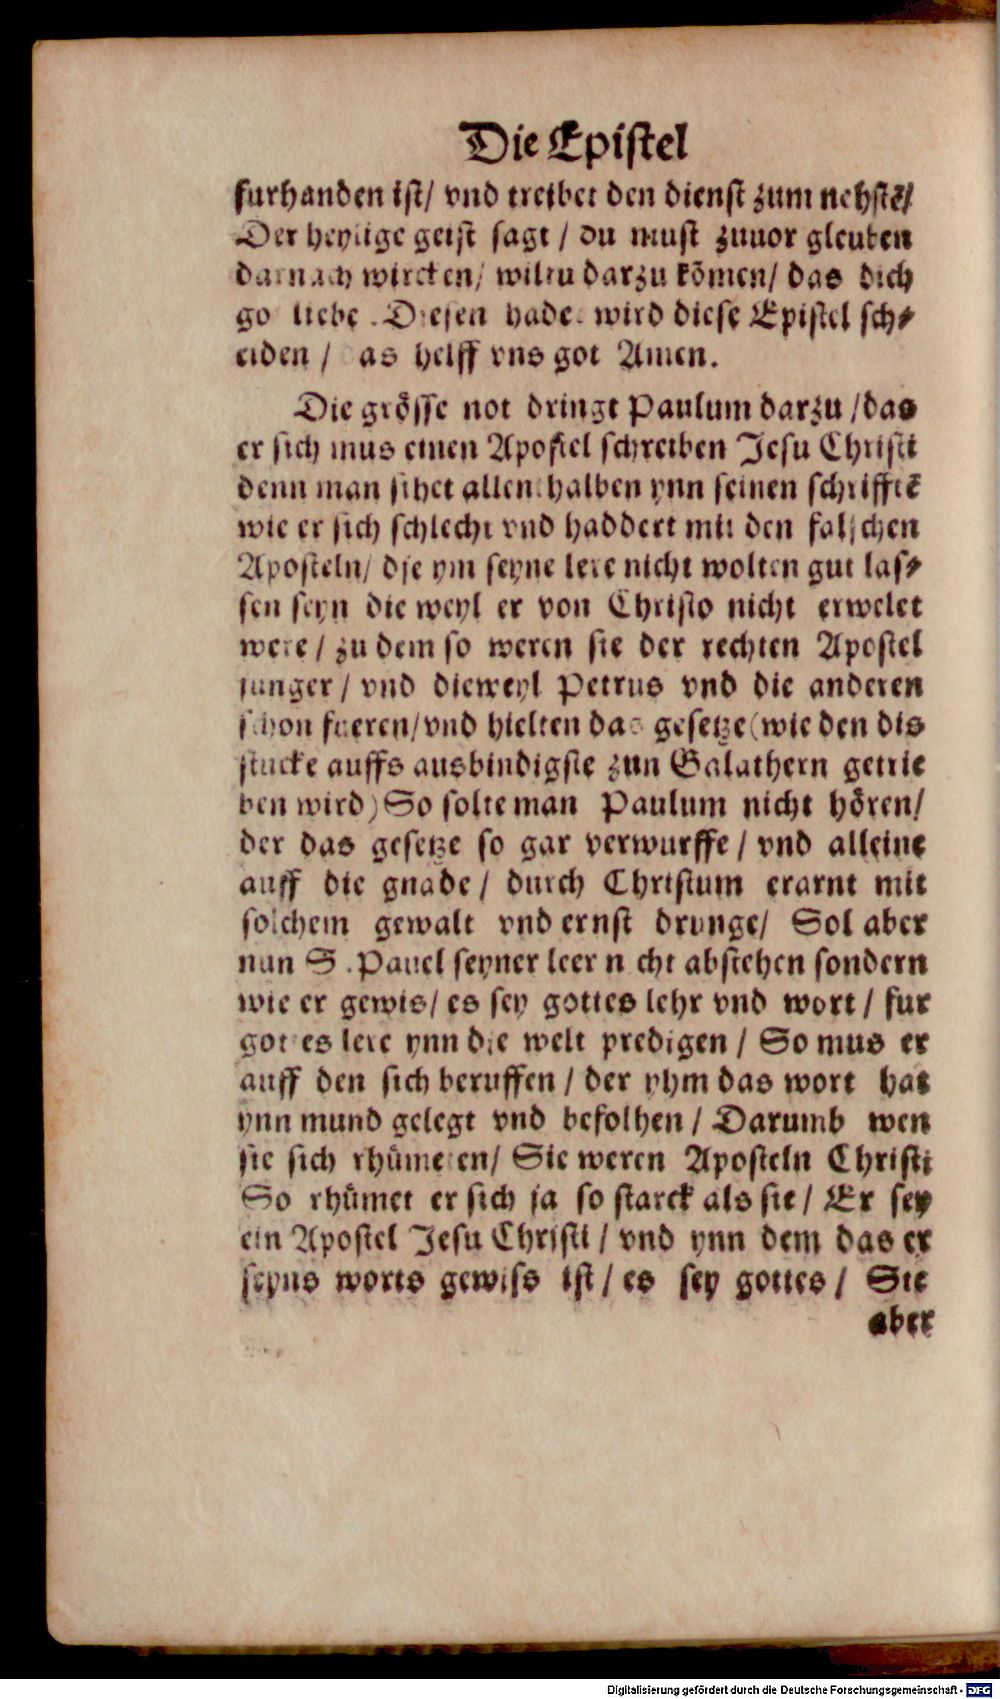 Die Epistel
furhanden ist/ vnd treibet den dienst zum nehstẽ/
Der heylige geist sagt / du must zuuor gleuben
darnach wircken/ wiltu darzu kõmen/ das dich
go liebe . Diesen hader wird diese Epistel sch⸗
eiden / as helff vns got Amen.
Die grösse not dringt Paulum darzu /das
er sich mus einen Apostel schreiben Jesu Christi
denn man sihet allenthalben ynn seinen schrifftẽ
wie er sich schlecht vnd haddert mit den falschen
Aposteln/ die ym seyne lere nicht wolten gut las⸗
sen seyn die weyl er von Christo nicht erwelet
were / zu dem so weren sie der rechten Apostel
junger / vnd dieweyl Petrus vnd die anderen
schon fueren/vnd hielten das gesetze (wie den dis
stucke auffs ausbindigste zun Galathern getrie
ben wird) So solte man Paulum nicht hören/
der das gesetze so gar verwurffe / vnd alleine
auff die gnade / durch Christum erarnt mit
solchem gewalt vnd ernst drunge/ Sol aber
nun S . Pauel seyner leer nicht abstehen sondern
wie er gewis/ es sey gottes lehr vnd wort / fur
gottes lere ynn die welt predigen / So mus er
auff den sich beruffen / der yhm das wort hat
ynn mund gelegt vnd befolhen / Darumb wen
sie sich rhümeten/ Sie weren Aposteln Christi
So rhümet er sich ja so starck als sie / Er sey
ein Apostel Jesu Christi / vnd ynn dem das er
seyns worts gewiss ist / es sey gottes / Sie
aber
Digitalisierung gefördert durch die Deutsche Forschungsgemeinschaft - DFG